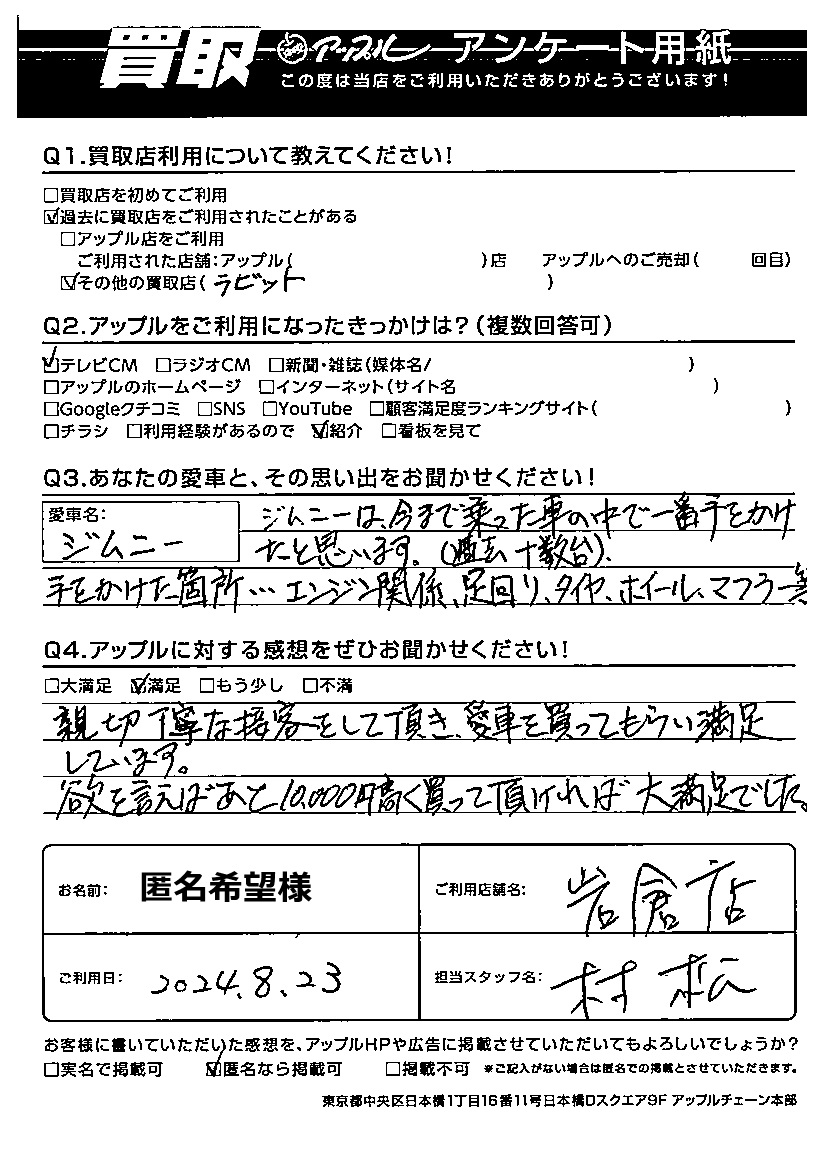 買取 アップル アンケート用紙
この度は当店をご利用いただきありがとうございます!
Q1.買取店利用について教えてください!
□買取店を初めてご利用
☑過去に買取店をご利用されたことがある
□アップル店をご利用
ご利用された店舗:アップル( )店 アップルへのご売却( 回目)
☑その他の買取店( ラビット )
Q2.アップルをご利用になったきっかけは?(複数回答可)
☑テレビCM □ラジオCM □新聞・雑誌(媒体名/ )
□アップルのホームページ □インターネット(サイト名 )
□Googleクチコミ □SNS □YouTube □顧客満足度ランキングサイト( )
□チラシ □利用経験があるので ☑紹介 □看板を見て
Q3.あなたの愛車と、その思い出をお聞かせください!
愛車名:
ジムニー
ジムニーは、今まで乗った車の中で一番手をかけ
たと思います。(過去十数台).
手をかけた箇所…エンジン関係、足回り、タイヤ、ホイール、マフラー
Q4.アップルに対する感想をぜひお聞かせください!
□大満足 ☑満足 □もう少し □不満
親切丁寧な接客をして頂き、愛車を買ってもらい満足
しています。
欲を言えばあと10,000円高く買って頂ければ大満足でした。
お名前: 匿名希望様 ご利用店舗名: 岩倉店
ご利用日: 2024.8.23 担当スタッフ名: 村松
お客様に書いていただいた感想を、アップルHPや広告に掲載させていただいてもよろしいでしょうか?
□実名で掲載可 ☑匿名なら掲載可 □掲載不可 ※ご記入がない場合は匿名での掲載とさせていただきます。
東京都中央区日本橋1丁目16番11号日本橋Dスクエア9F アップルチェーン本部